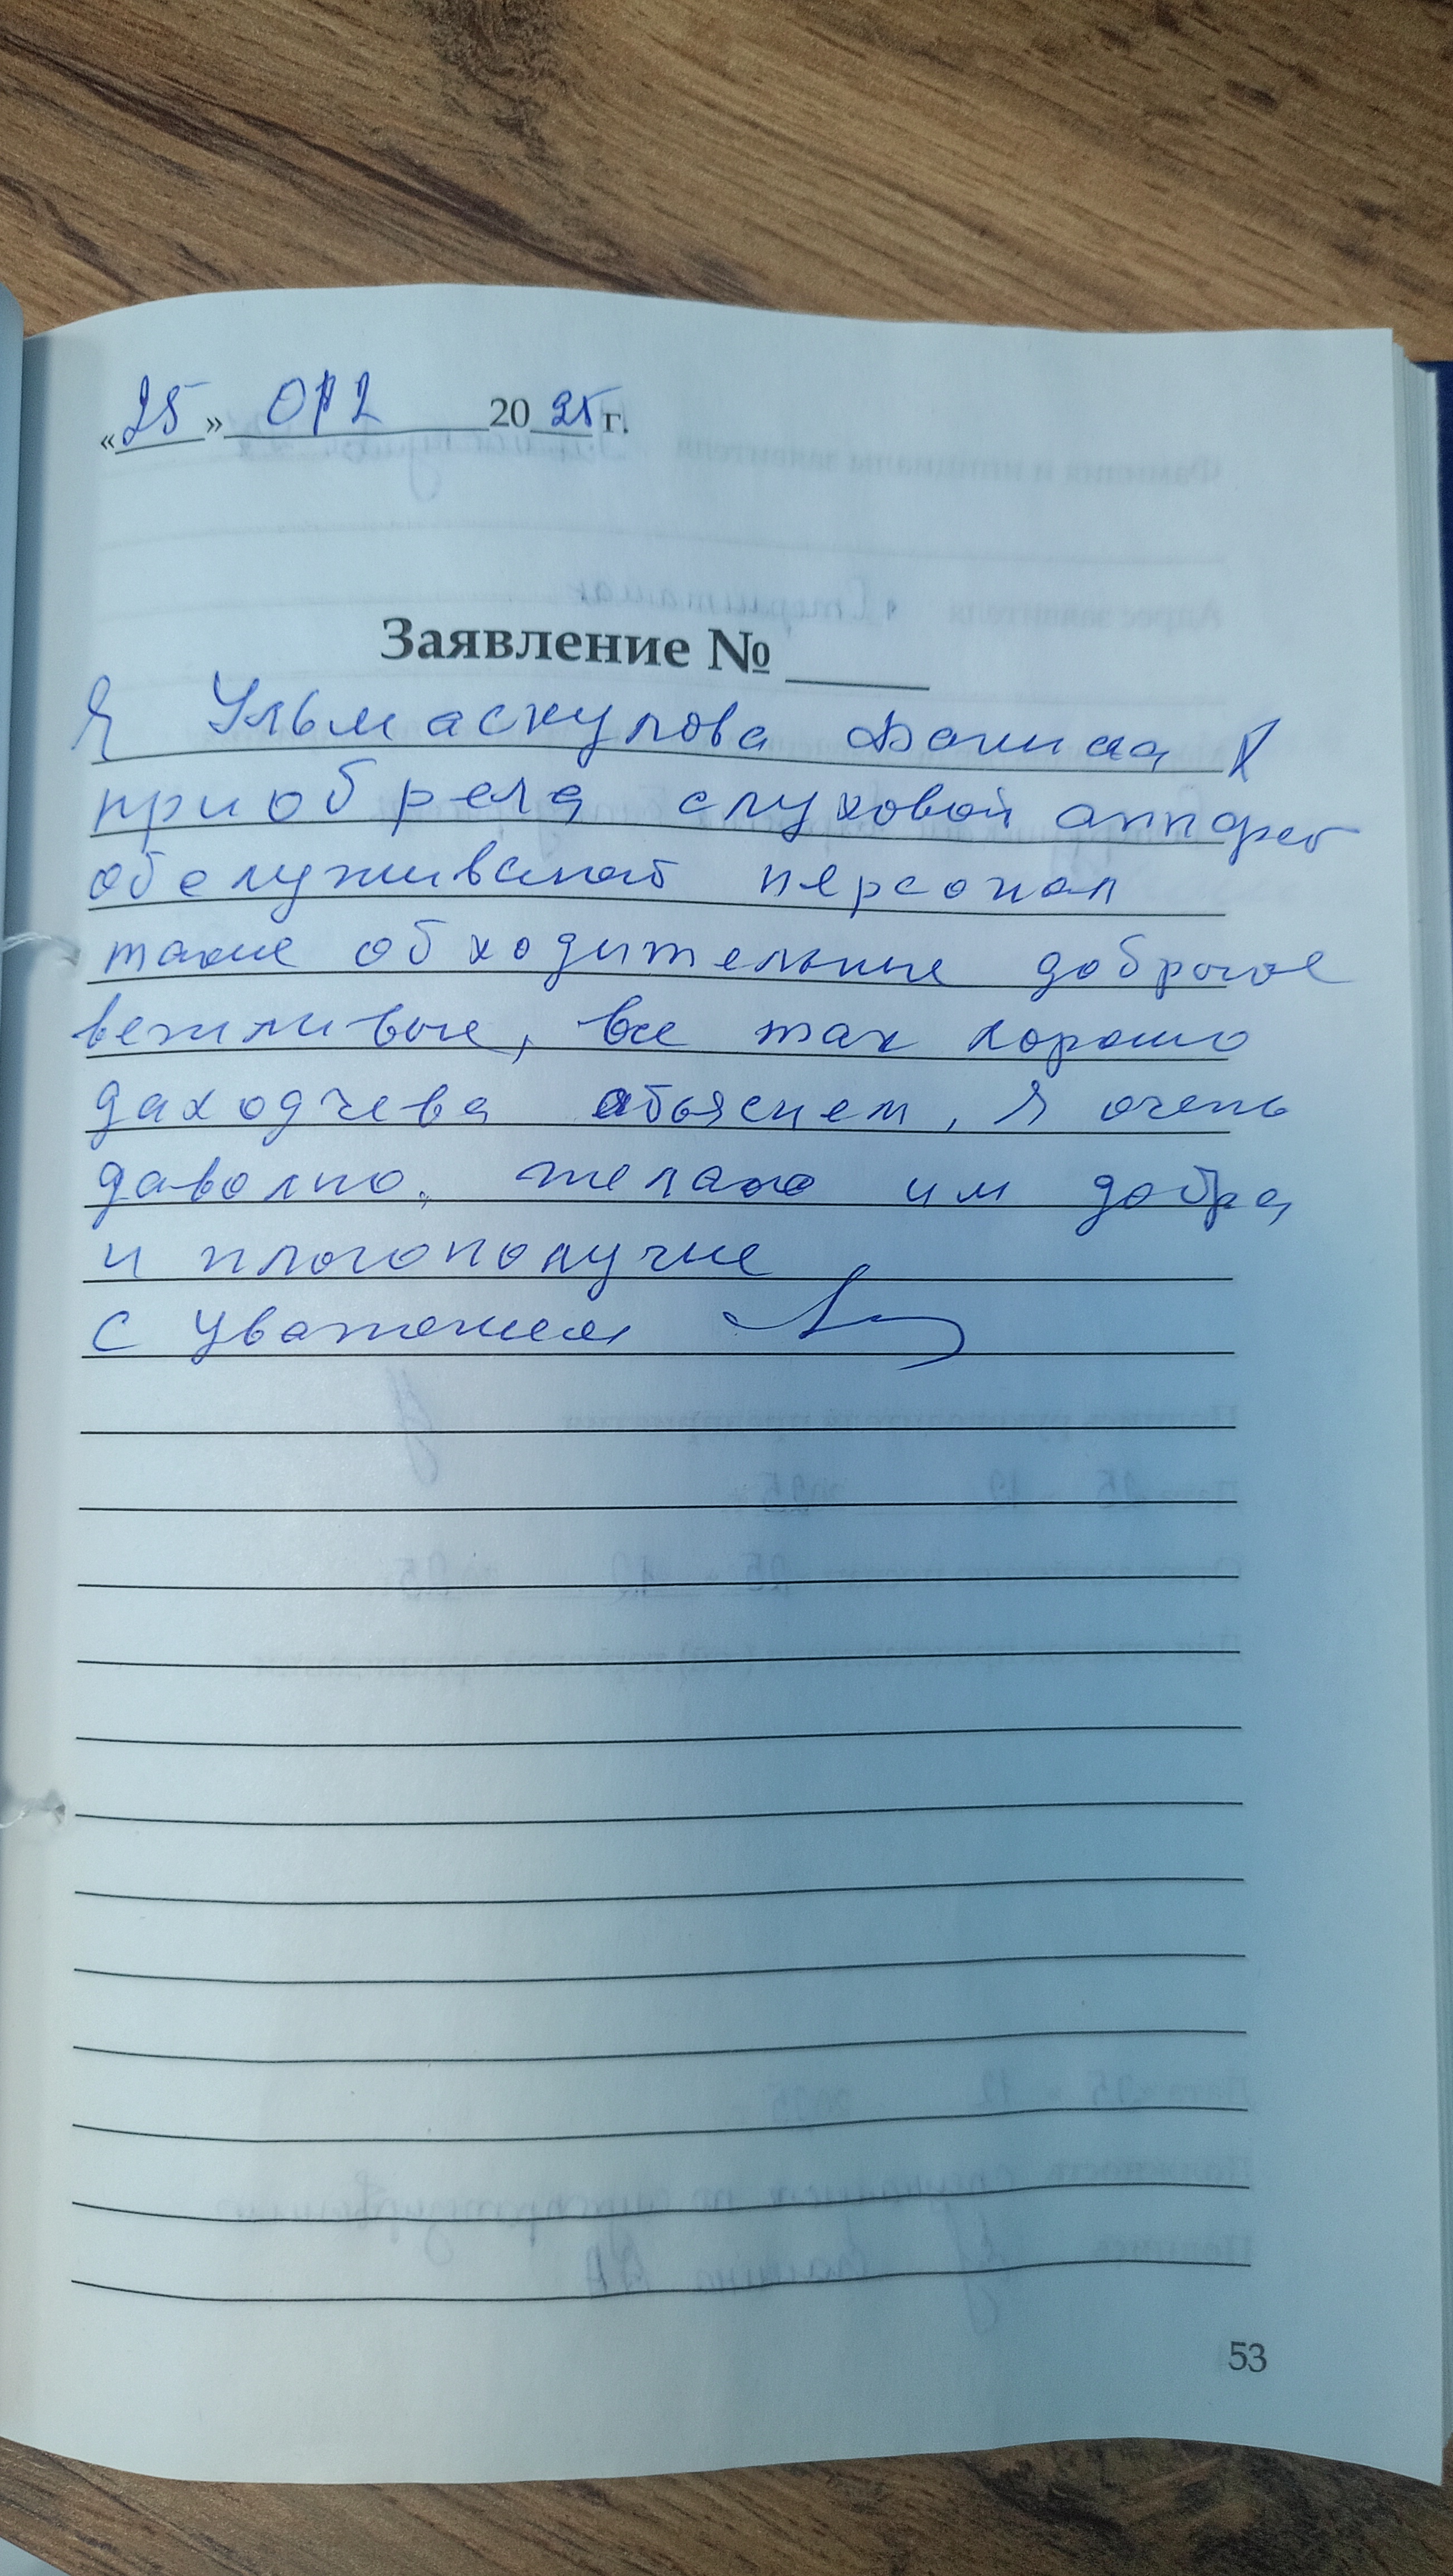 «25» 012 2025 г.
Заявление №
Я Ульмаскулова Фания
приобрела слуховой аппарат
обслуживают персонал
такие обходительные доброые
вежливые, все так хорошо
даходчева абьяснем, Я очень
даволно. желаю им добра
и плогополучие
с уважением
53